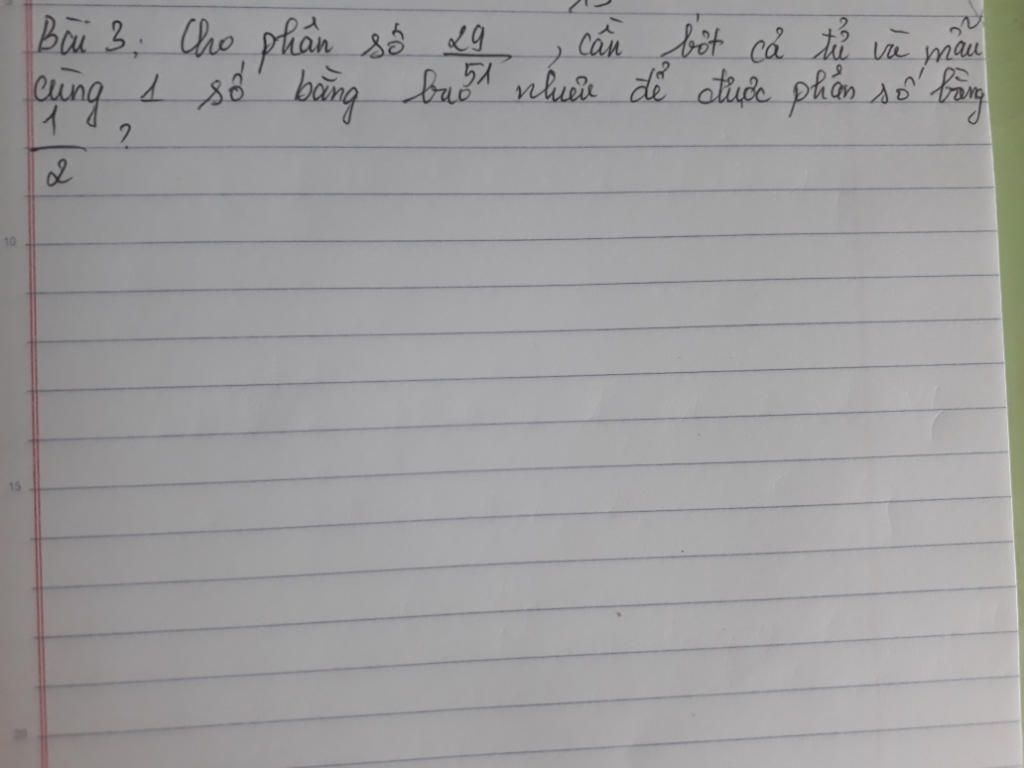 Bài 3: Cho phân số 29/51, cần bớt cả tử và mẫu
cùng 1 số bằng bao nhiêu để được phân số bằng
1/2 ?
10
15
20